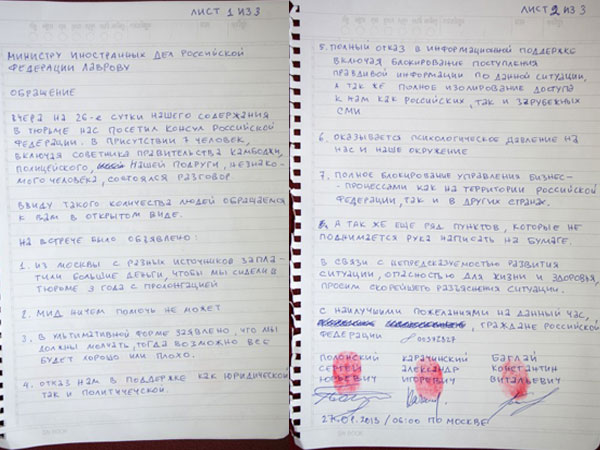 ЛИСТ 1 ИЗ 3
МИНИСТРУ ИНОСТРАННЫХ ДЕЛ РОССИЙСКОЙ
ФЕДЕРАЦИИ ЛАВРОВУ
ОБРАЩЕНИЕ
ВЧЕРА НА 26-е СУТКИ НАШЕГО СОДЕРЖАНИЯ
В ТЮРЬМЕ НАС ПОСЕТИЛ КОНСУЛ РОССИЙСКОЙ
ФЕДЕРАЦИИ. В ПРИСУТСТВИИ 7 ЧЕЛОВЕК,
ВКЛЮЧАЯ СОВЕТНИКА ПРАВИТЕЛЬСТВА КАМБОДЖИ,
ПОЛИЦЕЙСКОГО, НАШЕЙ ПОДРУГИ, НЕЗНАКО-
МОГО ЧЕЛОВЕКА, СОСТОЯЛСЯ РАЗГОВОР.
ВВИДУ ТАКОГО КОЛИЧЕСТВА ЛЮДЕЙ ОБРАЩАЕМСЯ
К ВАМ В ОТКРЫТОМ ВИДЕ.
НА ВСТРЕЧЕ БЫЛО ОБЪЯВЛЕНО:
1. ИЗ МОСКВЫ С РАЗНЫХ ИСТОЧНИКОВ ЗАПЛА-
ТИЛИ БОЛЬШИЕ ДЕНЬГИ, ЧТОБЫ МЫ СИДЕЛИ В
ТЮРЬМЕ 3 ГОДА С ПРОЛОНГАЦИЕЙ
2. МИД НИЧЕМ ПОМОЧЬ НЕ МОЖЕТ
3. В УЛЬТИМАТИВНОЙ ФОРМЕ ЗАЯВЛЕНО, ЧТО МЫ
ДОЛЖНЫ МОЛЧАТЬ, ТОГДА ВОЗМОЖНО ВСЕ
БУДЕТ ХОРОШО ИЛИ ПЛОХО.
4. ОТКАЗ НАМ В ПОДДЕРЖКЕ КАК ЮРИДИЧЕСКОЙ
ТАК И ПОЛИТИЧЕСКОЙ.
ЛИСТ 2 ИЗ 3
5. ПОЛНЫЙ ОТКАЗ В ИНФОРМАЦИОННОЙ ПОДДЕРЖКЕ
ВКЛЮЧАЯ БЛОКИРОВАНИЕ ПОСТУПЛЕНИЯ
ПРАВДИВОЙ ИНФОРМАЦИИ ПО ДАННОЙ СИТУАЦИИ,
А ТАК ЖЕ ПОЛНОЕ ИЗОЛИРОВАНИЕ ДОСТУПА
К НАМ КАК РОССИЙСКИХ, ТАК И ЗАРУБЕЖНЫХ
СМИ
6. ОКАЗЫВАЕТСЯ ПСИХОЛОГИЧЕСКОЕ ДАВЛЕНИЕ НА
НАС И НАШЕ ОКРУЖЕНИЕ
7. ПОЛНОЕ БЛОКИРОВАНИЕ УПРАВЛЕНИЯ БИЗНЕС-
-ПРОЦЕССАМИ КАК НА ТЕРРИТОРИИ РОССИЙСКОЙ
ФЕДЕРАЦИИ, ТАК И В ДРУГИХ СТРАНАХ.
А ТАК ЖЕ ЕЩЕ РЯД ПУНКТОВ, КОТОРЫЕ НЕ
ПОДНИМАЕТСЯ РУКА НАПИСАТЬ НА БУМАГЕ.
В СВЯЗИ С НЕПРЕДСКАЗУЕМОСТЬЮ РАЗВИТИЯ
СИТУАЦИИ, ОПАСНОСТЬЮ ДЛЯ ЖИЗНИ И ЗДОРОВЬЯ,
ПРОСИМ СКОРЕЙШЕГО РАЗЪЯСНЕНИЯ СИТУАЦИИ.
С НАИЛУЧШИМИ ПОЖЕЛАНИЯМИ НА ДАННЫЙ ЧАС,
, ГРАЖДАНЕ РОССИЙСКОЙ
ФЕДЕРАЦИИ
ПОЛОНСКИЙ КАРАЧИНСКИЙ БАГЛАЙ
СЕРГЕЙ АЛЕКСАНДР КОНСТАНТИН
ЮРЬЕВИЧ ИГОРЕВИЧ ВИТАЛЬЕВИЧ
27.01.2013 / 06:00 ПО МОСКВЕ